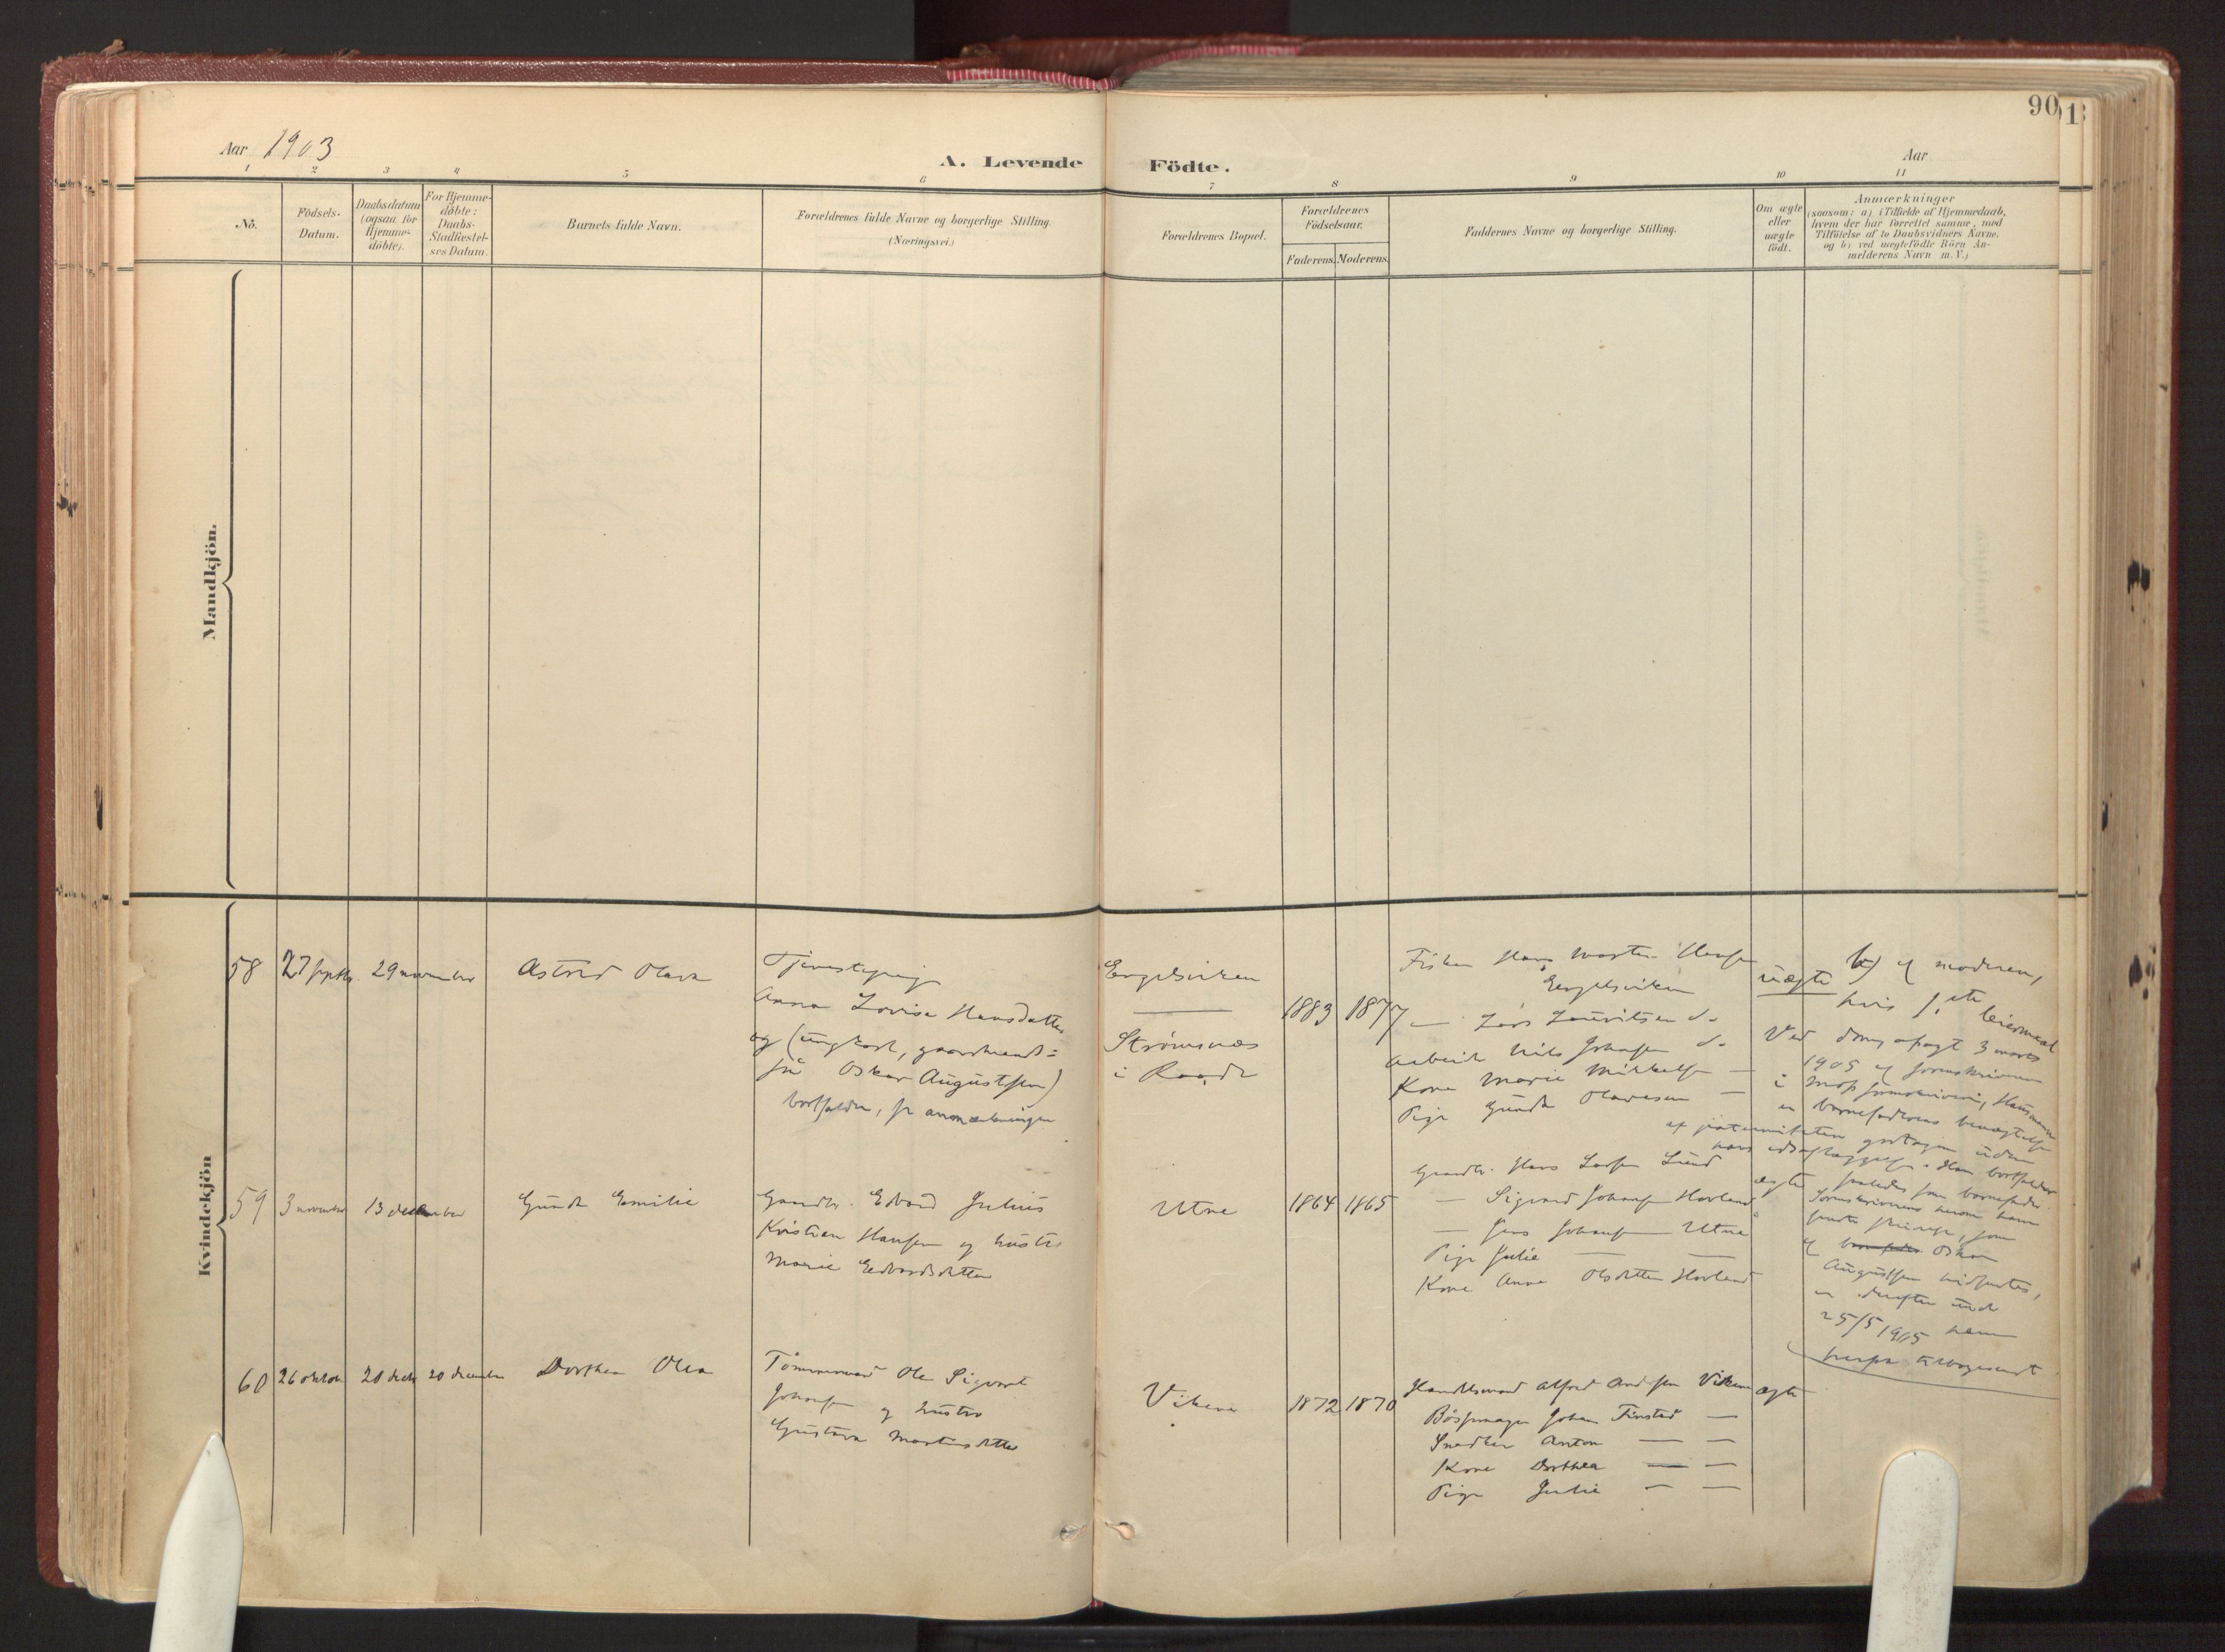 90
1
Aar 1903
A. Levende Födte.
Aar
1 2 3 4 5 6 7 8 9 10 11
No.
Födsels-Datum.
Daabsdatum (ogsaa for Hjemme-döbte).
For Hjemme-döbte: Daabs-Stadfæstel-ses Datum.
Barnets fulde Navn.
Forældrenes fulde Navne og borgerlige Stilling.
(Næringsvei.)
Forældrenes Bopæl.
Forældrenes Födselsaar.
Faderens. Moderens.
Faddernes Navne og borgerlige Stilling.
Om ægte eller uægte födt.
Anmærkninger
(saasom: a) i Tilfælde af Hjemmedaab,
hvem der har forrettet samme, med
Tilföielse af to Daabsvidners Navne.
og b) ved uægtefödte Börn An-
melderens Navn m. V.)
Mandkjön.
Kvindekjön
58 27 septbr. 29 november Astrid Olava
Tjenestepige
Anna Lovise Hansdatter
og (ungkarl, gaardmands-
søn Oskar Augustssen)
bortfalder, se anmærkningen
Engelsviken
Strömsnæs
i Raade
1883 1877
Fisker Hans Hansen
Engelsviken
— Lars Lauritsen do
Arbeid. Nils Johansen do
Kone Marie Mikkelsen —
Pige Gunda Olavesen —
uægte
b) af moderen,
hvis 1ste leiermaal
Ved dom afsagt 3 marts
1905 af sorenskriveren
i Moss sorenskriveri,
er barnefaderens benægtelse
af paterniteten godtagen uden
hans edsaflæggelse. Han bortfalder
saaledes som barnefader.
Sorenskriverens herom
som
af barnefader Oskar
Augustssen
er derefter under
25/5 1905 ham
herfra tilbagesendt
59 3 november 13 december Gunda Emilie
Gaardbr. Edvard Julius
Kristian Hansen og hustru
Marie Edvardsdatter
Utne
1864 1865
Gaardbr. Hans Larsen Lund
— Sigvard Johansen Hovland
— Jens Johansen Utne
Pige Julie — —
Kone Anne Olsdatter Hovland
ægte
60 26 oktob. 20 decb. 20 december Dorthea Olea
Tømmermand Ole Sigvart
Johansen og hustru
Gustava Martinsdatter
Vikene
1872 1870
Handelsmand Alfred Andersen Viken
Bössemager Johan Finstad —
Snedker Anton — —
Kone Dorthea — —
Pige Julie — —
ægte